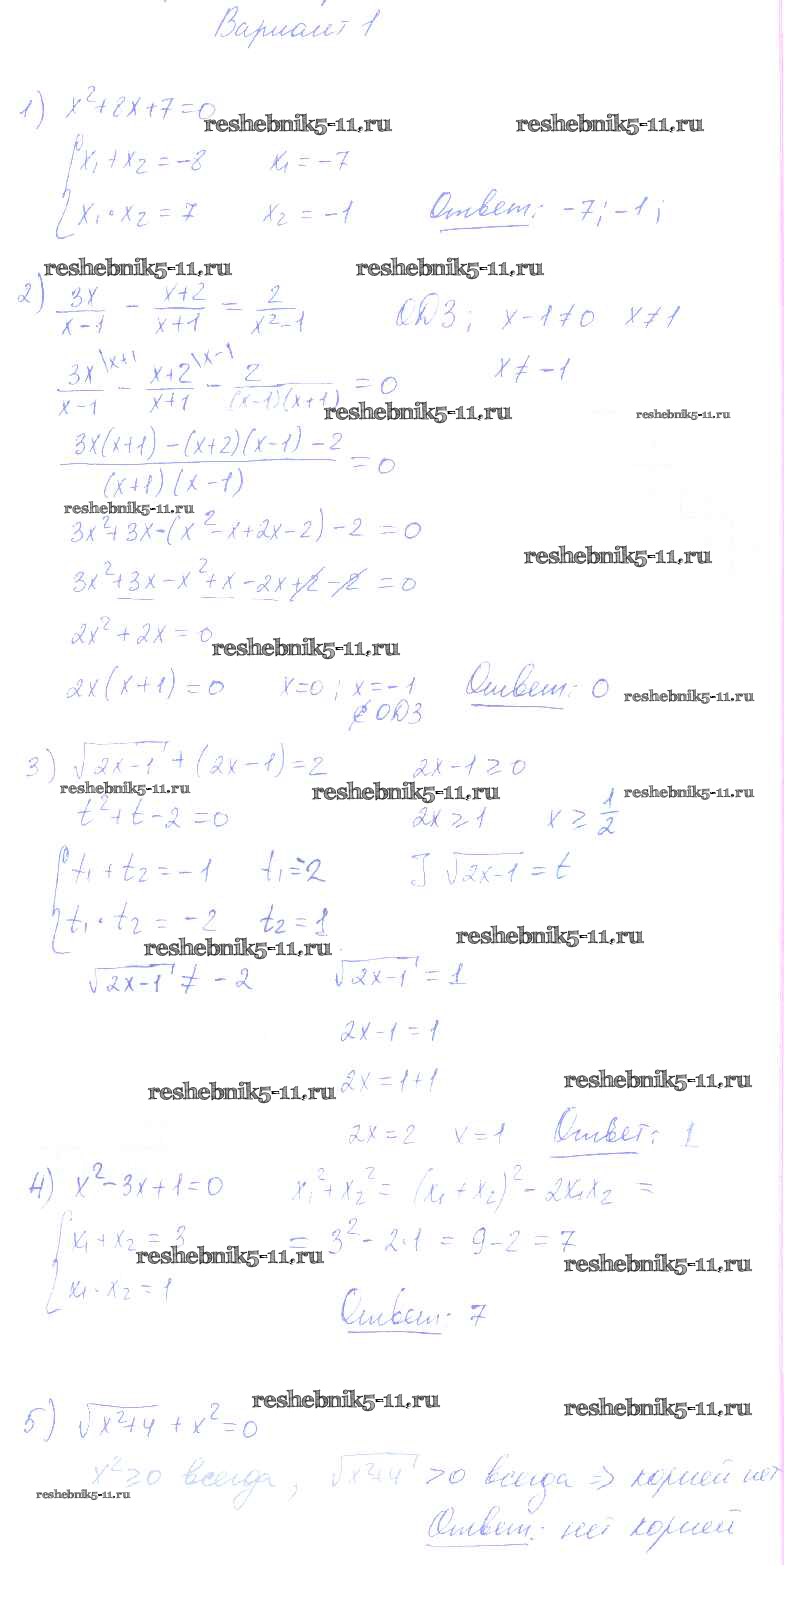 Вариант 1
1) x²+2x+7=0
reshebnik5-11.ru reshebnik5-11.ru
x₁+x₂=-8 x₁=-7
x₁·x₂=7 x₂=-1 Ответ: -7; -1;
reshebnik5-11.ru reshebnik5-11.ru
2) 3x/(x-1) - (x+2)/(x+1) = 2/(x²-1) ОДЗ; x-1≠0 x≠1
x≠-1
3x\x+1/(x-1) - (x+2)\x-1/(x+1) - 2/((x-1)(x+1)) = 0
reshebnik5-11.ru reshebnik5-11.ru
(3x(x+1)-(x+2)(x-1)-2)/((x+1)(x-1)) = 0
reshebnik5-11.ru
3x²+3x-(x²-x+2x-2)-2=0
reshebnik5-11.ru
3x²+3x-x²+x-2x+2-2=0
2x²+2x=0
reshebnik5-11.ru
2x(x+1)=0 x=0; x=-1 Ответ: 0
reshebnik5-11.ru
∉ОДЗ
3) √(2x-1)+(2x-1)=2 2x-1≥0
reshebnik5-11.ru reshebnik5-11.ru reshebnik5-11.ru
t²+t-2=0 2x≥1 x≥1/2
t₁+t₂=-1 t₁=-2 ] √(2x-1)=t
t₁·t₂=-2 t₂=1
reshebnik5-11.ru reshebnik5-11.ru
√(2x-1)≠-2 √(2x-1)=1
2x-1=1
reshebnik5-11.ru 2x=1+1 reshebnik5-11.ru
2x=2 x=1 Ответ: 1
4) x²-3x+1=0 x₁²+x₂²=(x₁+x₂)²-2x₁x₂=
x₁+x₂=3 =3²-2·1=9-2=7
reshebnik5-11.ru reshebnik5-11.ru
x₁·x₂=1
Ответ: 7
reshebnik5-11.ru reshebnik5-11.ru
5) √(x²+4)+x²=0
x²≥0 всегда, √(x²+4)>0 всегда ⇒ корней нет
reshebnik5-11.ru
Ответ: нет корней